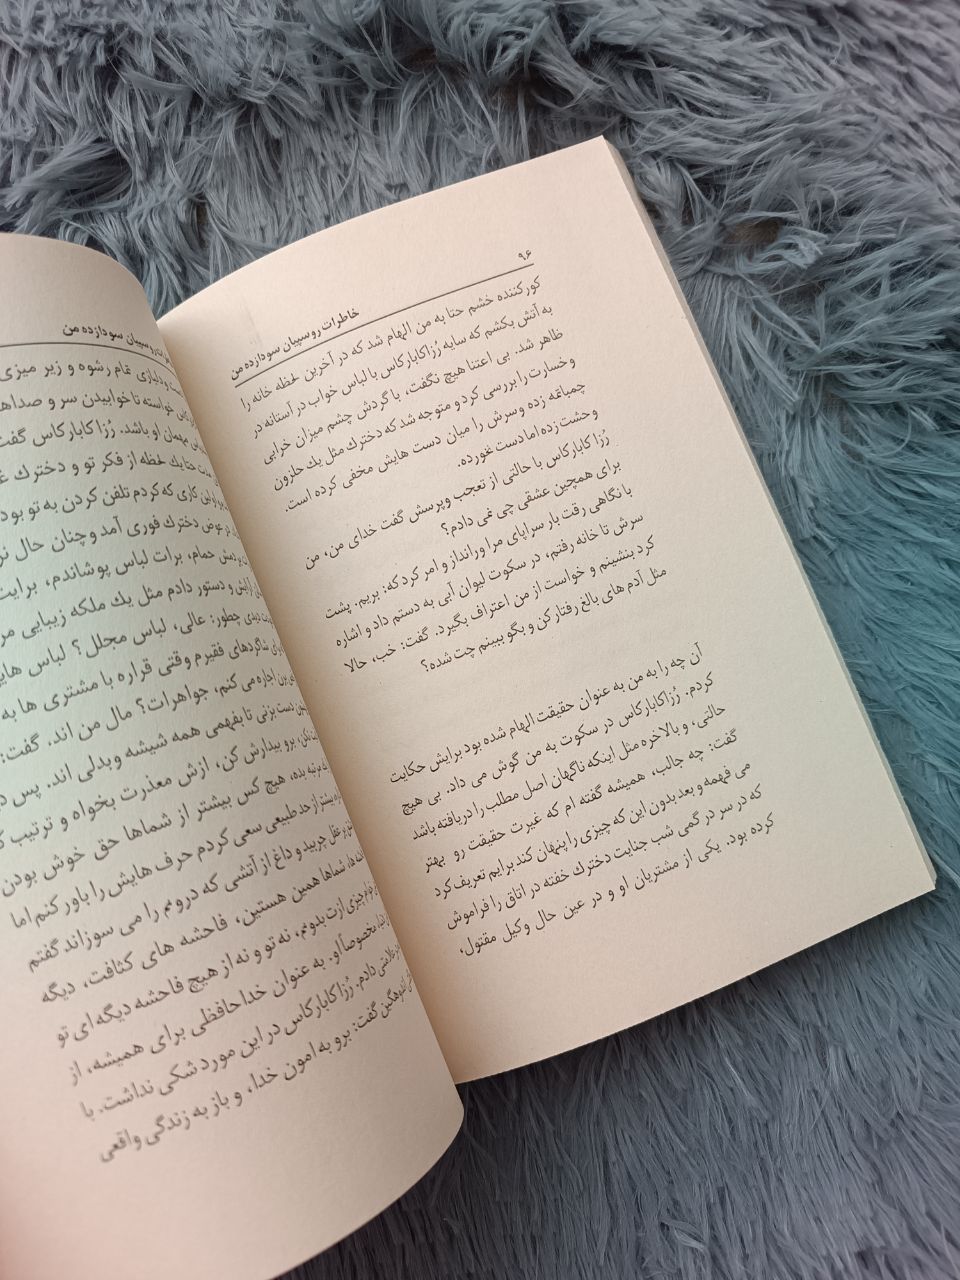 ۹۶
خاطرات روسپیان سودازده من
کورکننده خشم حتا به من الهام شد که در آخرین لحظه خانه را
به آتش بکشم که سایه رُزاکابارکاس با لباس خواب در آستانه در
ظاهر شد. بی اعتنا هیچ نگفت، با گردش چشم میزان خرابی
و خسارت را بررسی کرد و متوجه شد که دخترك مثل یك حلزون
چمباتمه زده و سرش را میان دست هایش مخفی کرده است.
وحشت زده اما دست نخورده.
رُزا کابارکاس با حالتی از تعجب و پرسش گفت خدای من، من
برای همچین عشقی چی نمی دادم؟
با نگاهی رقت بار سراپای مرا ورانداز و امر کرد که: بریم. پشت
سرش تا خانه رفتم، در سکوت لیوان آبی به دستم داد و اشاره
کرد بنشینم و خواست از من اعتراف بگیرد. گفت: خب، حالا
مثل آدم های بالغ رفتار کن و بگو ببینم چت شده؟
آن چه را به من به عنوان حقیقت الهام شده بود برایش حکایت
کردم. رُزاکابارکاس در سکوت به من گوش می داد. بی هیچ
حالتی، و بالاخره مثل اینکه ناگهان اصل مطلب را دریافته باشد
گفت: چه جالب، همیشه گفته ام که غیرت حقیقت رو بهتر
می فهمه و بعد بدون این که چیزی را پنهان کند برایم تعریف کرد
که در سر در گمی شب جنایت دخترك خفته در اتاق را فراموش
کرده بود. یکی از مشتریان او و در عین حال وکیل مقتول،
روسپیان سودازده من
و دلبازی تمام رشوه و زیر میزی
خواسته تا خوابیدن سر و صداها
مهمان او باشد. رُزا کابارکاس گفت
حتا یك لحظه از فکر تو و دخترك
اولین کاری که کردم تلفن کردن به تو بود
عوض دخترك فوری آمد و چنان حال
حمام، برات لباس پوشاندم، برایت
آرایش و دستور دادم مثل یك ملکه زیبایی
دیدی چطور: عالی، لباس مجلل؟ لباس
شاگردهای فقیرم وقتی قراره با مشتری ها به
اجاره می کنم، جواهرات؟ مال من اند. گفت:
دست بزنی تا بفهمی همه شیشه و بدلی اند. پس
برو بیدارش کن، ازش معذرت بخواه و ترتیب
بده، هیچ کس بیشتر از شماها حق خوش بودن
بیشتر از حد طبیعی سعی کردم حرف هایش را باور کنم اما
عقل چربید و داغ از آتشی که درونم را می سوزاند گفتم
شماها همین هستین، فاحشه های کثافت، دیگه
چیزی ازت بدونم، نه تو و نه از هیچ فاحشه دیگه ای تو
مخصوصاً او. به عنوان خداحافظی برای همیشه، از
دادم. رُزا کابارکاس در این مورد شکی نداشت. با
گفت: برو به امون خدا، و باز به زندگی واقعی